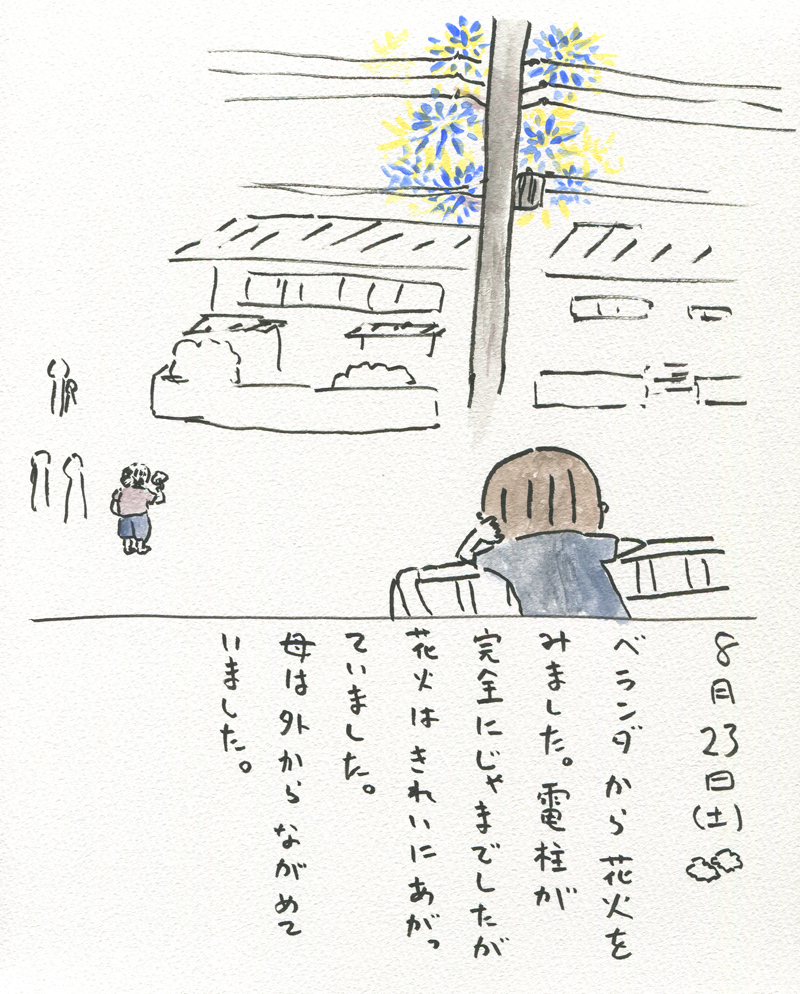 8月23日(土)
ベランダから花火を
みました。電柱が
完全にじゃまでしたが
花火はきれいにあがっ
ていました。
母は外からながめて
いました。